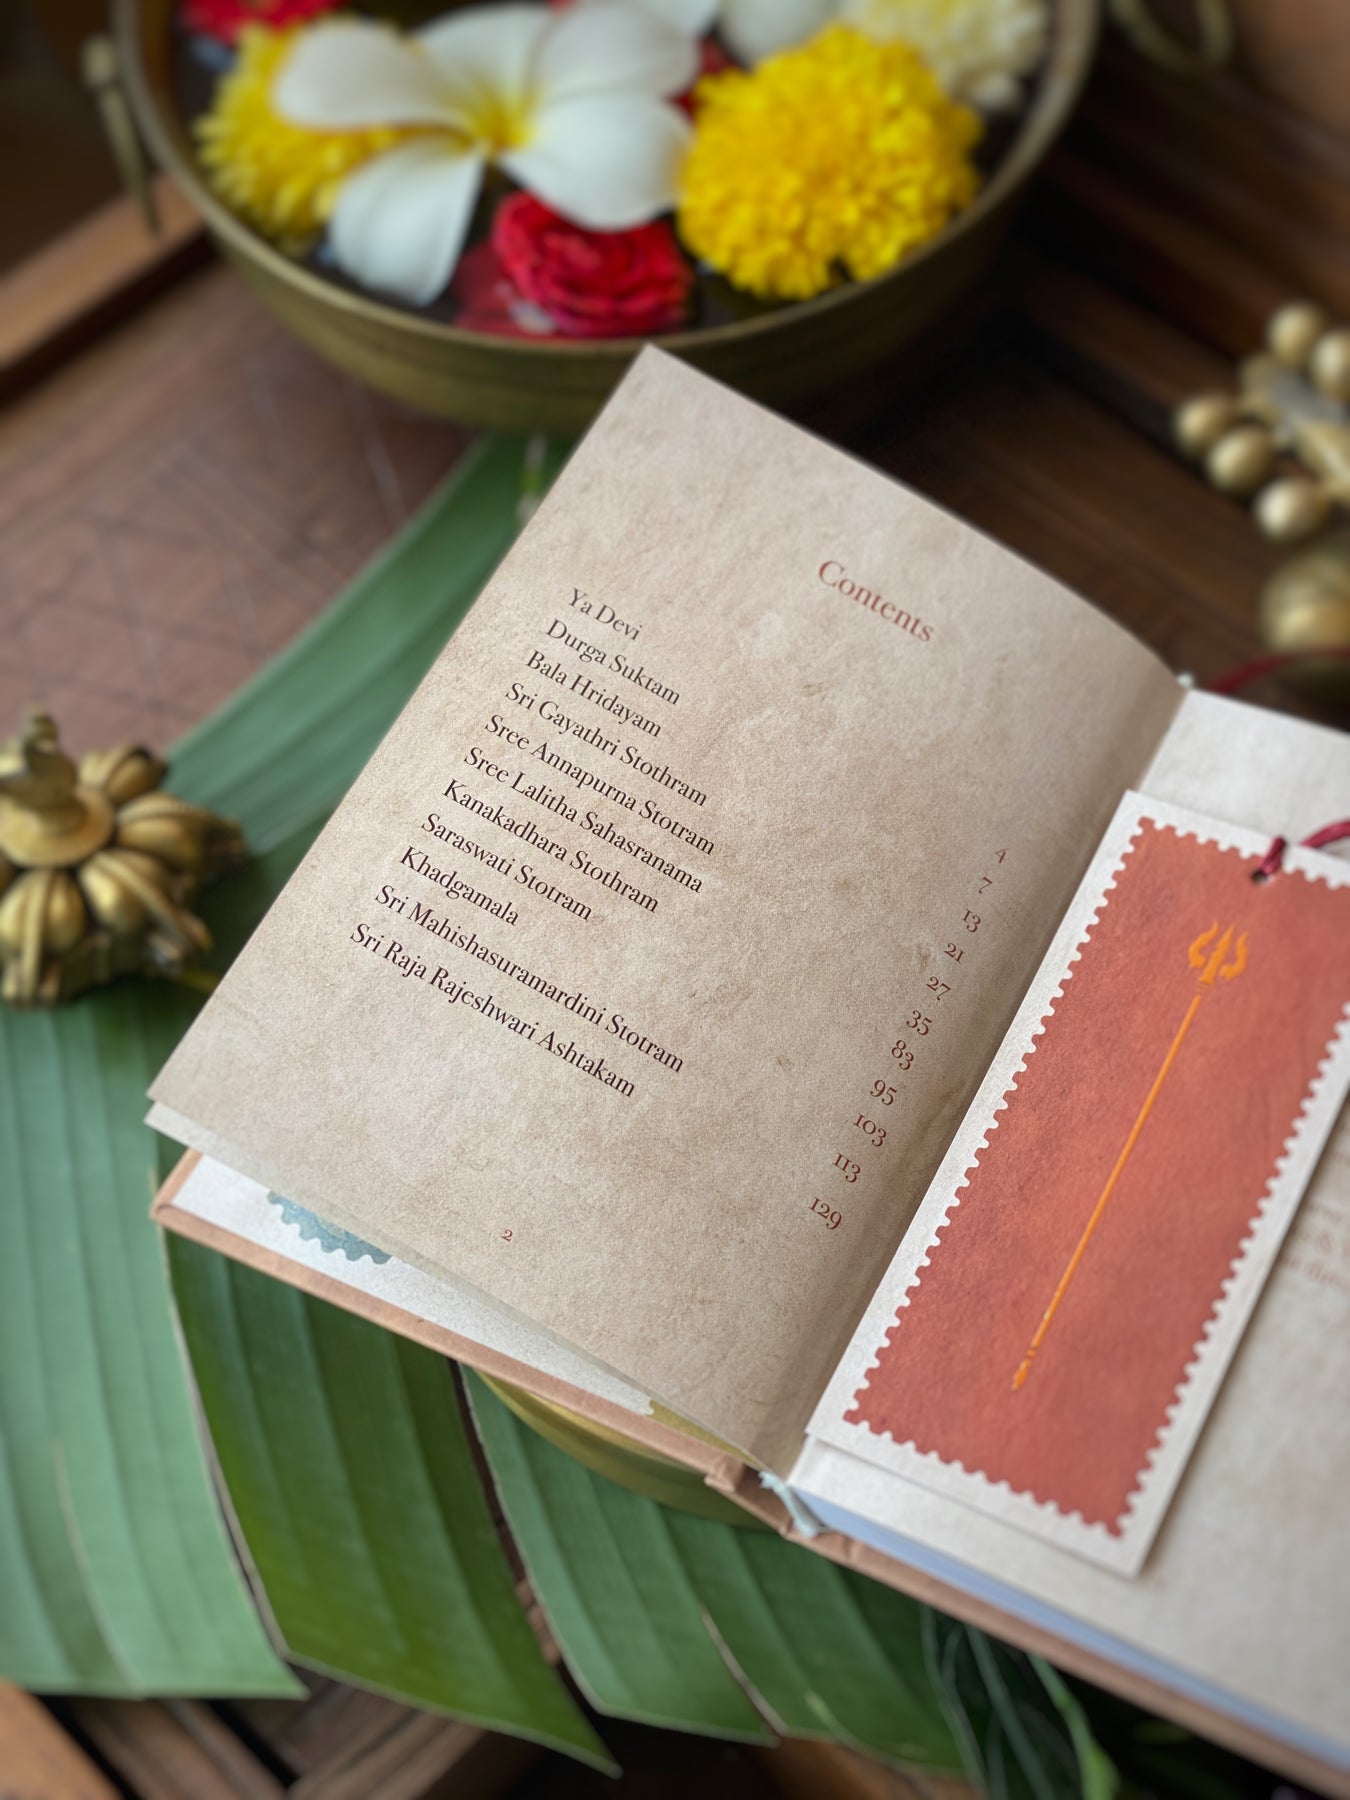 Contents
Ya Devi 4
Durga Suktam 7
Bala Hridayam 13
Sri Gayathri Stothram 21
Sree Annapurna Stotram 27
Sree Lalitha Sahasranama 35
Kanakadhara Stothram 83
Saraswati Stotram 95
Khadgamala 103
Sri Mahishasuramardini Stotram 113
Sri Raja Rajeshwari Ashtakam 129
2